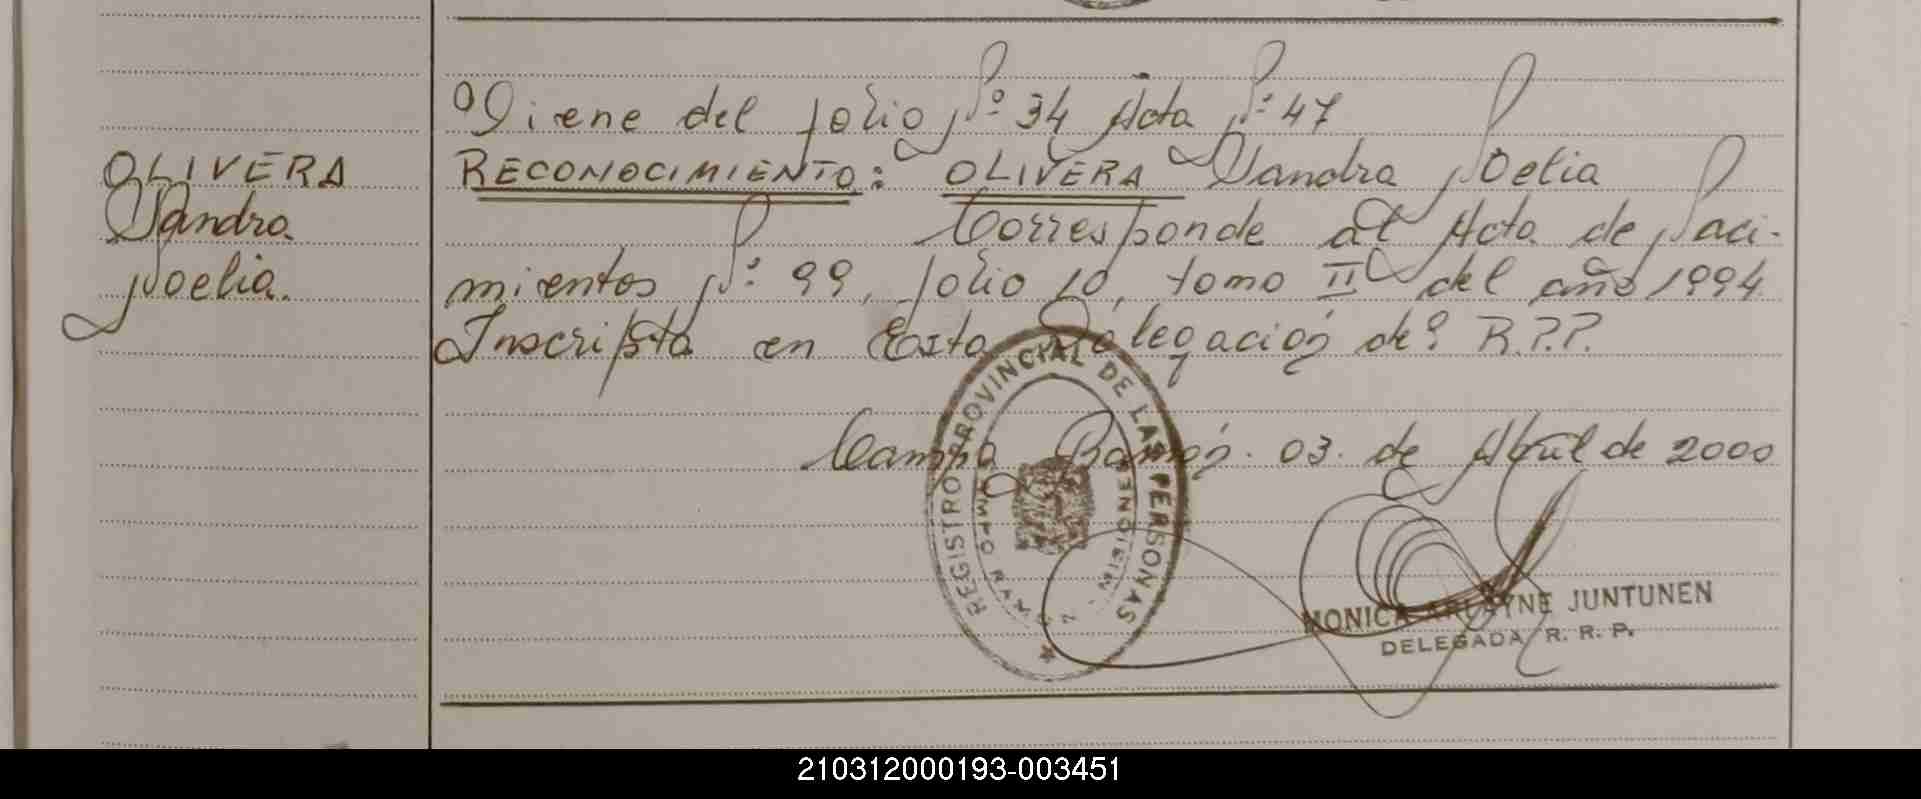 Viene del folio Nº 34 Acta Nº 47
OLIVERA
Sandra
Noelia.
RECONOCIMIENTO: OLIVERA Sandra Noelia
Corresponde al Acta de Naci-
mientos Nº 99, folio 10, tomo II del año 1994
Inscripta en Esta Delegación de R.P.P.
Campo Ramón. 03. de Abril de 2000
REGISTRO PROVINCIAL DE LAS PERSONAS
MONICA ARLAYNE JUNTUNEN
DELEGADA R. R. P.
210312000193-003451